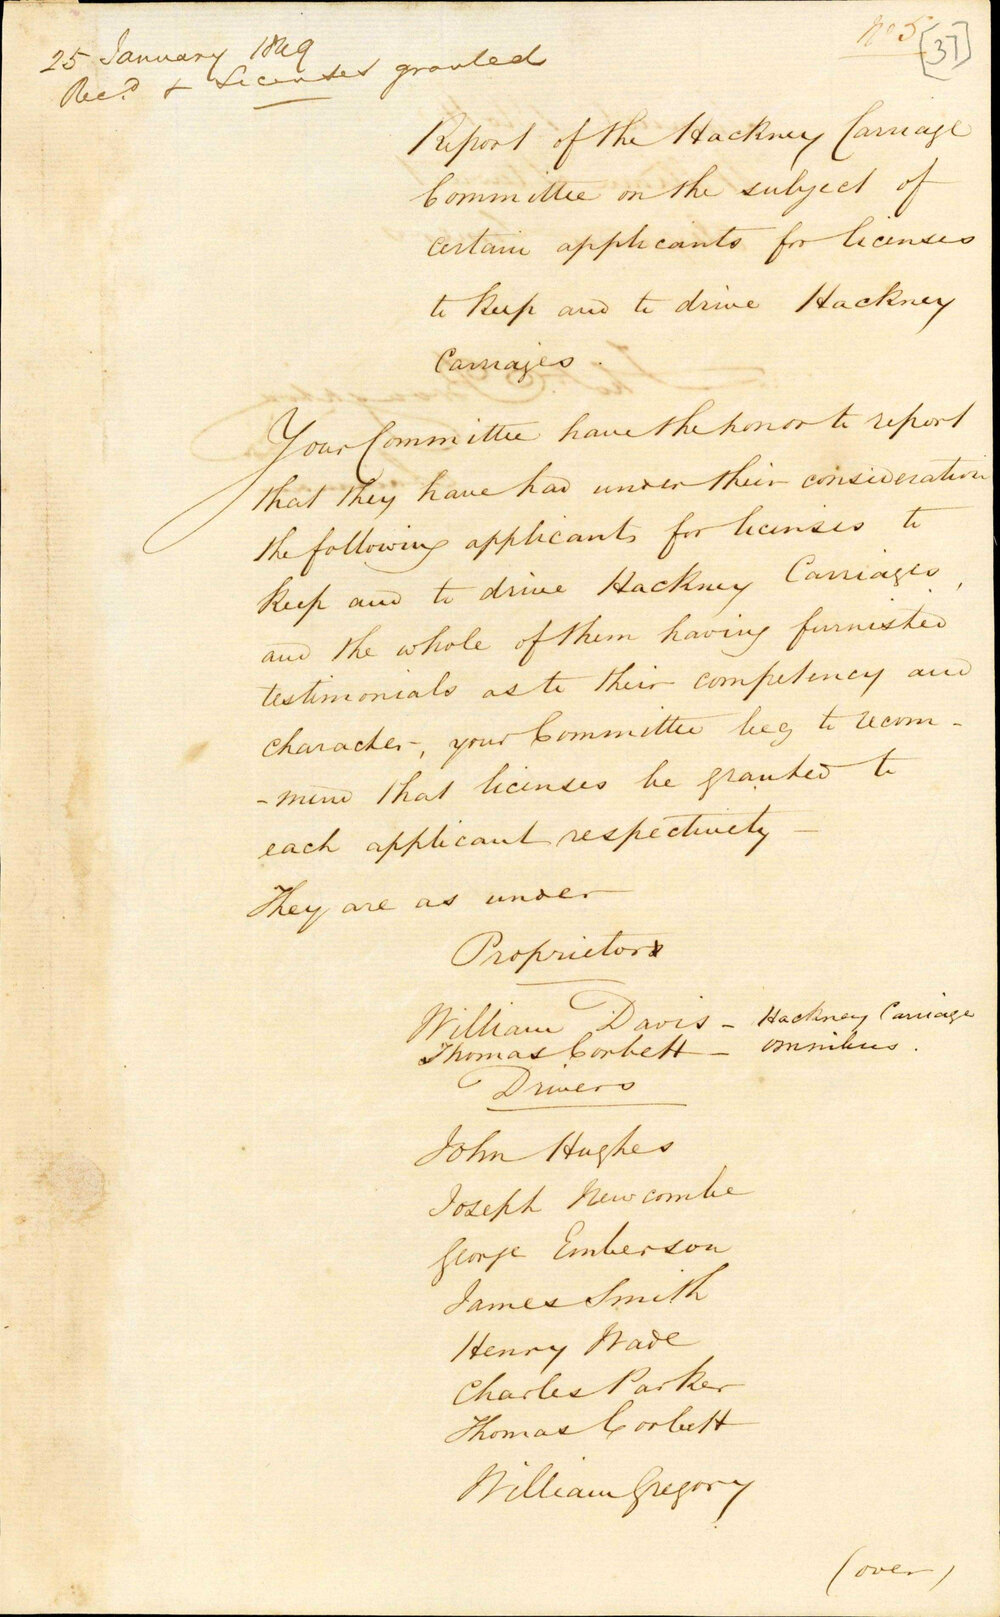 25 January 1849
Rec.d & Licenses granted
No 5
[37]
Report of the Hackney Carriage
Committee on the subject of
certain applicants for licenses
to keep and to drive Hackney
Carriages.
Your Committee have the honor to report
that they have had under their consideration
the following applicants for licenses to
keep and to drive Hackney Carriages,
and the whole of them having furnished
testimonials as to their competency and
character, your Committee beg to recom-
-mend that licenses be granted to
each applicant respectively –
They are as under
Proprietors
William Davis – Hackney Carriage
Thomas Corbett – Omnibus.
Drivers
John Hughes
Joseph Newcombe
George Emberson
James Smith
Henry Wade
Charles Parker
Thomas Corbett
William Gregory
(over)